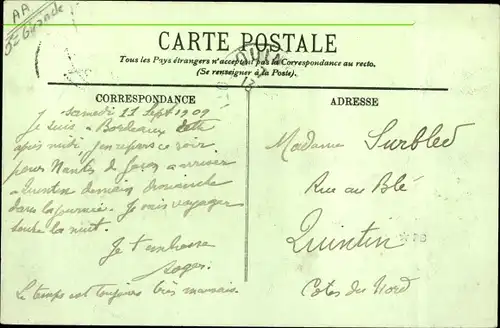 AA
CARTE POSTALE
Tous les Pays étrangers n'acceptent pas la Correspondance au recto.
(Se renseigner à la Poste).
CORRESPONDANCE
ADRESSE
samedi 11 Sept 1909
Je suis a Bordeaux cette
après midi, j'en repars ce soir
pour Nantes de façon a arriver
a Quintin demain dimanche
dans la journée. Je vais voyager
toute la nuit.
Je t'embrasse
Le temps est toujours très mauvais.
Madame Surbled
Rue au Blé
Quintin
Cotes du Nord